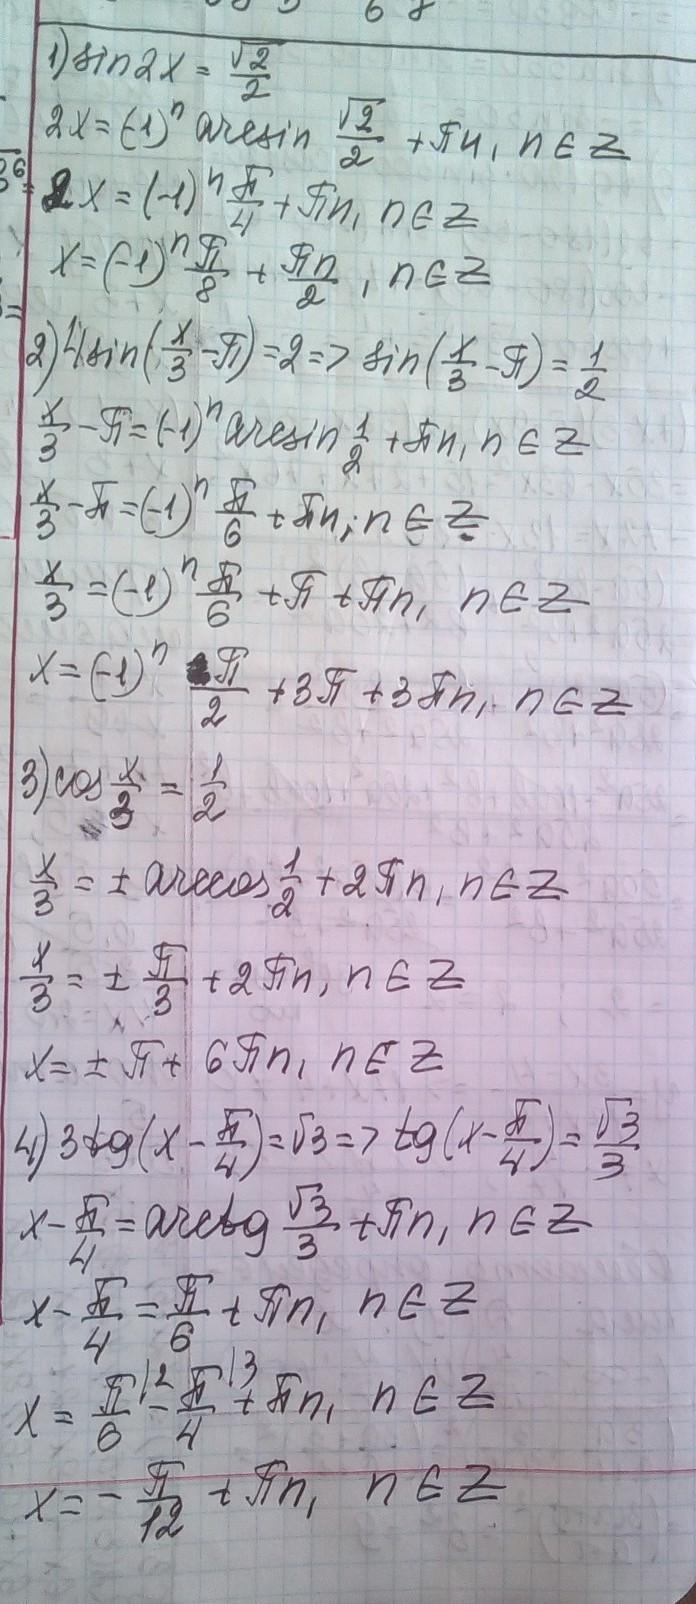 1) sin2x = √2/2
2x = (-1)ⁿ arcsin √2/2 + πn, n ∈ Z
2x = (-1)ⁿ π/4 + πn, n ∈ Z
x = (-1)ⁿ π/8 + πn/2, n ∈ Z
2) 4sin(x/3 - π) = 2 => sin(x/3 - π) = 1/2
x/3 - π = (-1)ⁿ arcsin 1/2 + πn, n ∈ Z
x/3 - π = (-1)ⁿ π/6 + πn, n ∈ Z
x/3 = (-1)ⁿ π/6 + π + πn, n ∈ Z
x = (-1)ⁿ π/2 + 3π + 3πn, n ∈ Z
3) cos x/3 = 1/2
x/3 = ± arccos 1/2 + 2πn, n ∈ Z
x/3 = ± π/3 + 2πn, n ∈ Z
x = ± π + 6πn, n ∈ Z
4) 3tg(x - π/4) = √3 => tg(x - π/4) = √3/3
x - π/4 = arctg √3/3 + πn, n ∈ Z
x - π/4 = π/6 + πn, n ∈ Z
x = π/6 |2 - π/4 |3 + πn, n ∈ Z
x = - π/12 + πn, n ∈ Z